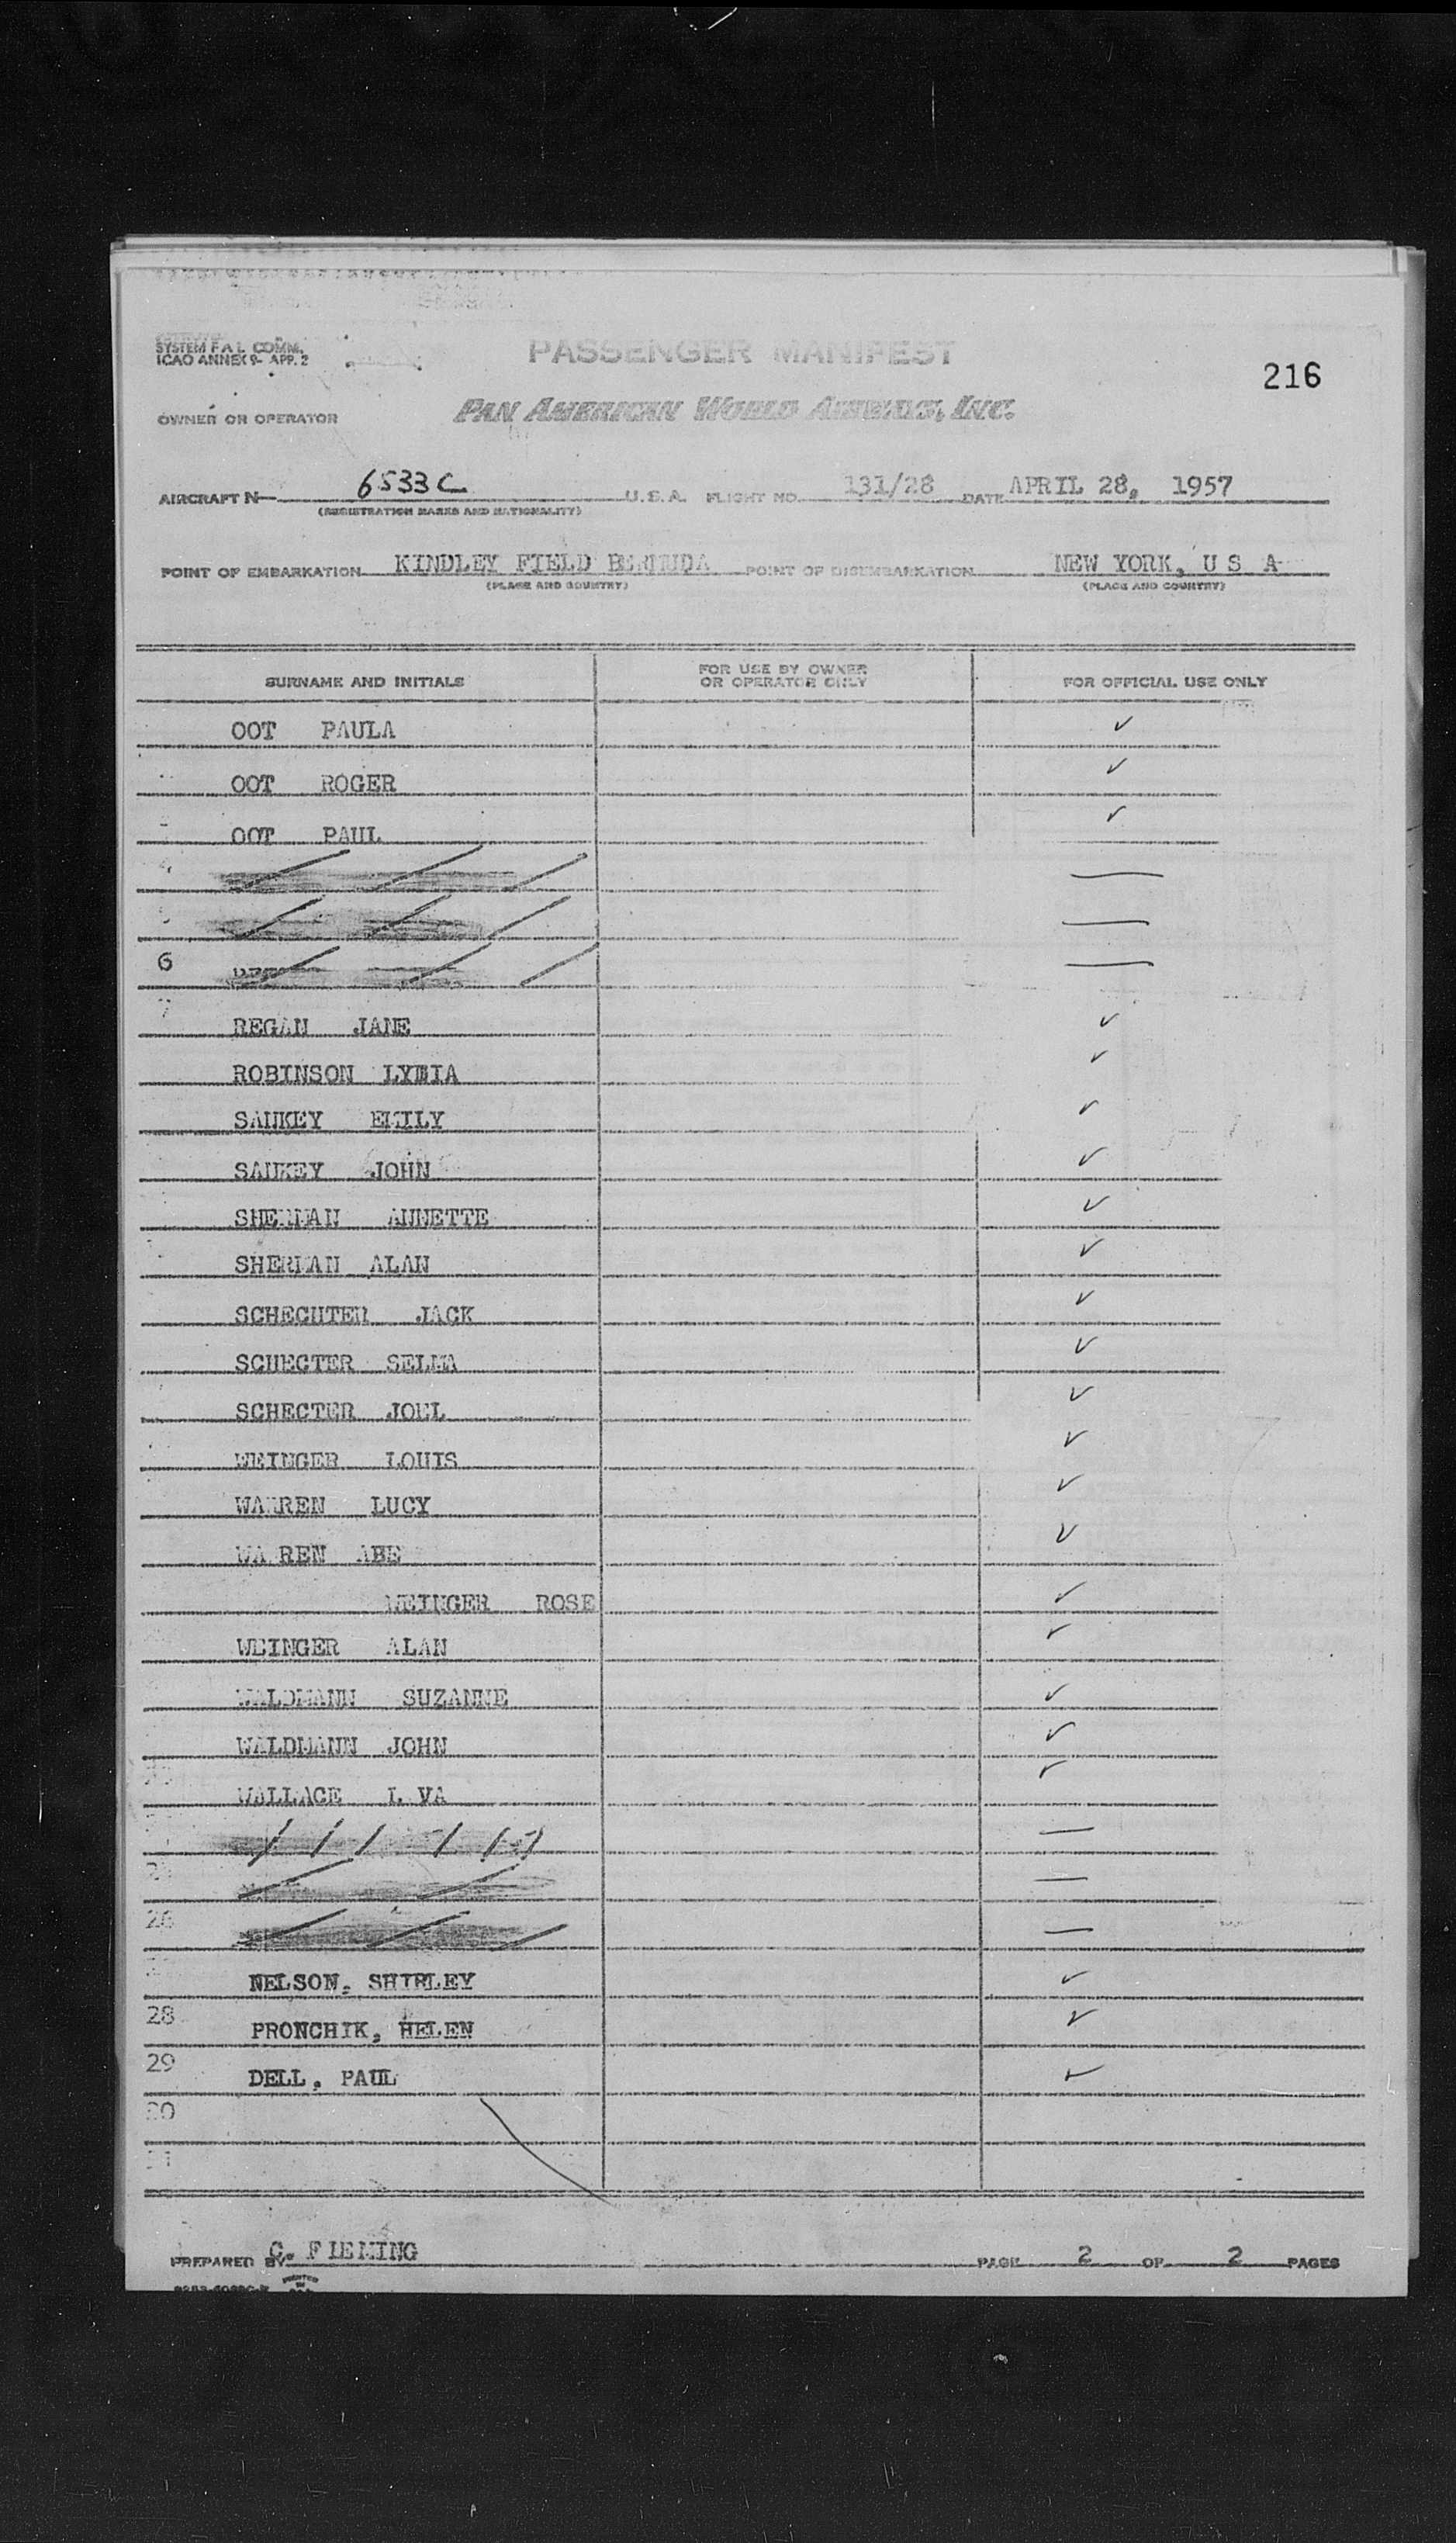 SYSTEM F A L COMM.
ICAO ANNEX 9- APP. 2
PASSENGER MANIFEST
216
OWNER OR OPERATOR
PAN AMERICAN WORLD AIRWAYS, INC.
AIRCRAFT N— 6533C U.S.A. FLIGHT NO. 131/28 DATE APRIL 28, 1957
(REGISTRATION MARKS AND NATIONALITY)
POINT OF EMBARKATION KINDLEY FIELD BERMUDA POINT OF DISEMBARKATION NEW YORK, U S A
(PLACE AND COUNTRY) (PLACE AND COUNTRY)
SURNAME AND INITIALS FOR USE BY OWNER OR OPERATOR ONLY FOR OFFICIAL USE ONLY
OOT PAULA ✓
OOT ROGER ✓
OOT PAUL ✓
4 —
5 —
6 —
7 REGAN JANE ✓
ROBINSON ✓
SANKEY EMILY ✓
SANKEY JOHN ✓
SHERMAN ANNETTE ✓
SHERMAN ALAN ✓
SCHECHTER JACK ✓
SCHECTER SELMA ✓
SCHECTER JOEL ✓
WEINGER LOUIS ✓
WARREN LUCY ✓
WARREN ABE ✓
WEINGER ROSE ✓
WEINGER ALAN ✓
WALDMANN SUZANNE ✓
WALDMANN JOHN ✓
WALLACE ✓
—
25 —
26 —
NELSON, SHIRLEY ✓
28 PRONCHIK, HELEN ✓
29 DELL, PAUL ✓
30
31
PREPARED BY C. FLEMING PAGE 2 OF 2 PAGES
PRINTED IN